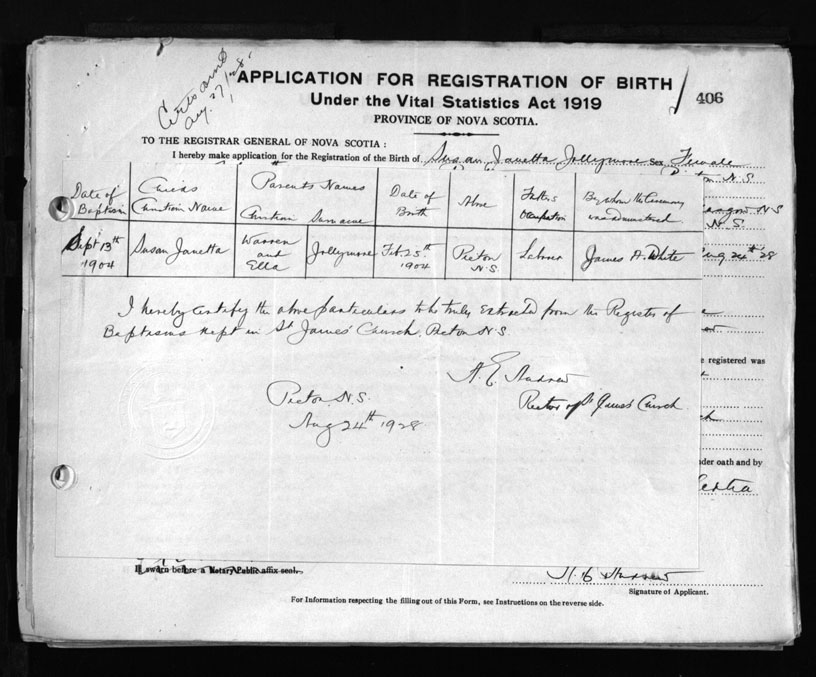 Aug. 27/28
APPLICATION FOR REGISTRATION OF BIRTH
406
Under the Vital Statistics Act 1919
PROVINCE OF NOVA SCOTIA.
TO THE REGISTRAR GENERAL OF NOVA SCOTIA :
I hereby make application for the Registration of the Birth of Susan Janetta Jollymore Sex Female
N.S.
Date of Baptism Childs Christian Name Parents Names Christian Surname Date of Birth Above Fathers Occupation By whom the Ceremony was administered
N.S.
N.S.
Sept 13th 1904 Susan Janetta Warren and Ella Jollymore Feb. 25th 1904 Picton N.S. Labour James A. White
Aug 24th 28
I hereby certify the above particulars to be truly extracted from the Register of
Baptisms kept in St James' Church, Picton N.S.
e registered was
A. E. Andrew
Rector of St James' Church
Picton N.S.
Aug 24th 1928
der oath and by
If sworn before a Notary Public affix seal.
A. E. Andrew
Signature of Applicant.
For Information respecting the filling out of this Form, see Instructions on the reverse side.